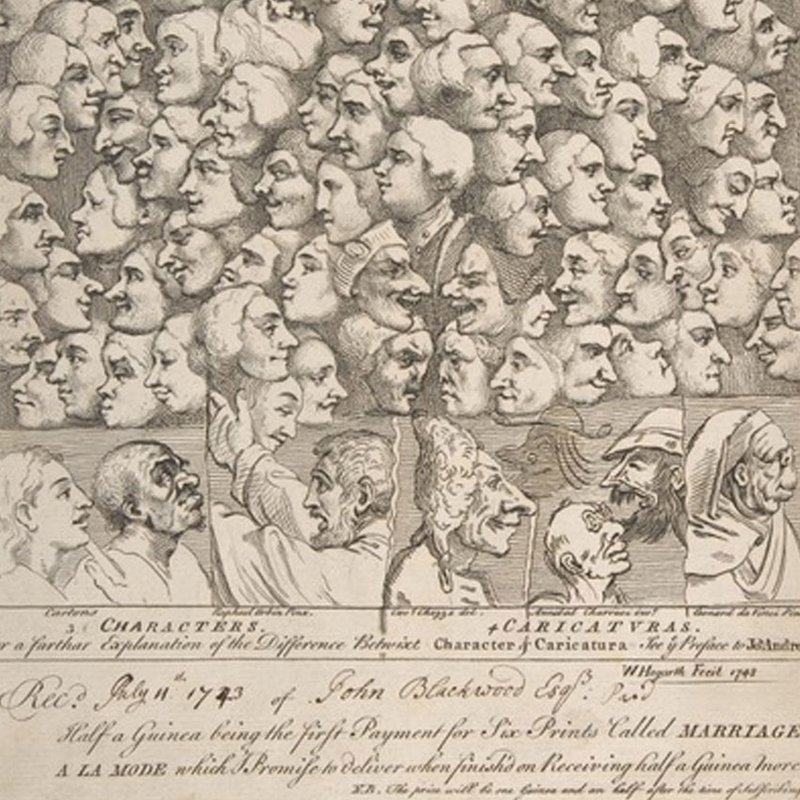 Cartons Raphael Urbin Pinx. Cavr Chezze del. Annibal Charracc invt Leonard da Vinci Pinx
3 CHARACTERS. 4 CARICATVRAS.
r a farthar Explanation of the Difference Betwixt Character & Caricatura See ye Preface to Joh Andre
W Hogarth Fecit 1743
Recd July 11th 1743 of John Blackwood Esqr
Half a Guinea being the first Payment for Six Prints Called MARRIAGE
A LA MODE which I Promise to deliver when finish'd on Receiving half a Guinea more
N.B. The price will be one Guinea and an half after the time of Subscribing